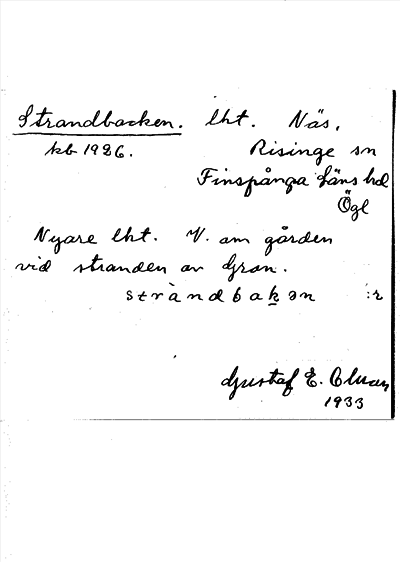 Strandbacken. lht. Näs,
kb 1926. Risinge sn
Finspånga läns hd
Ögl
Nyare lht. V. om gården
vid stranden av Gron.
stràndbak̲ən :r
Gustaf E. Olman
1933